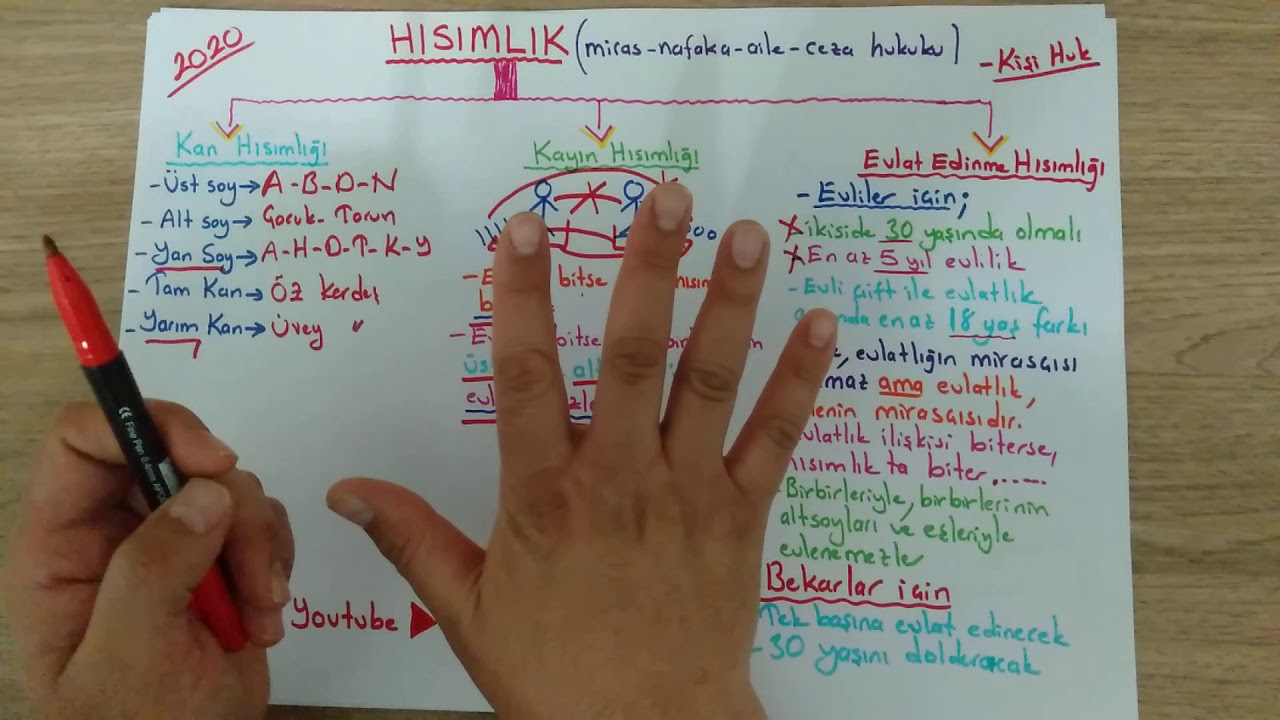 2020
HISIMLIK (miras-nafaka-aile-ceza hukuku)
-Kişi Huk
Kan Hısımlığı
-Üst soy→A-B-D-N
-Alt soy→Çocuk-Torun
-Yan Soy→A-H-D-T-K-Y
-Tam Kan→Öz Kardeş
-Yarım Kan→Üvey "
Kayın Hısımlığı
bitse
bitse
Evlat Edinme Hısımlığı
-Evliler için;
ikiside 30 yaşında olmalı
En az 5 yıl evlilik
-Evli çift ile evlatlık
en az 18 yaş farkı
evlatlığın mirasçısı
ama evlatlık,
mirasçısıdır.
ilişkisi biterse,
hısımlık ta biter......
-Birbirleriyle, birbirlerinin
altsoyları ve eşleriyle
evlenemezler
Bekarlar için
Tek başına evlat edinecek
-30 yaşını dolduracak
Youtube
CE Fine Pen 0.4mm